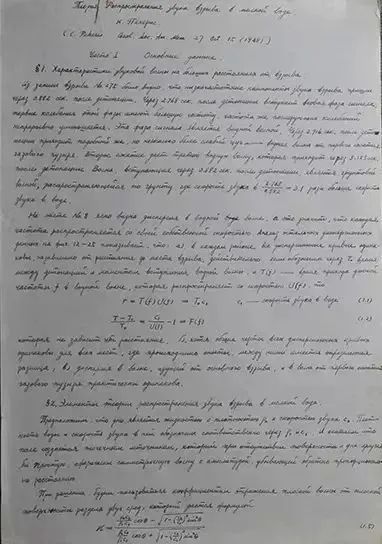 Теория распространения звука взрыва в мелкой воде
К. Пекерис
(C. Pekeris Geol. Soc. Am. Mem. 27 15 (1948))
Часть I Основные данные.
§1. Характеристики звуковой волны на больших расстояниях от взрыва.
Из записи взрыва № 272 было видно, что низкочастотные звука взрыва пришли
через 0.882 сек. после детонации. Через 2.768 сек. после детонации вступает водная фаза сигнала,
первые колебания этой фазы имеют большую частоту, частота же последующих колебаний
непрерывно уменьшается. Эта фаза сигнала является водной волной. Через 2.916 сек. после дето-
нации приходит подобный же, но несколько более слабый цуг — водная волна от первого сжатия
газового пузыря. Второе сжатие дает третью водную волну, которая приходит через
после детонации. Волна, вступающая через 0.882 сек. после детонации является грунтовой
волной, распространяющейся по грунту, где скорость звука в = 3.1 раза больше скорости
звука в воде.
На месте № 8 ясно видна дисперсия в водной волне. А это значит, что каждая
частота распространяется со своей собственной скоростью. Анализ дисперсионных
данных на фиг. 12-28 показывает, что: а) в каждом районе, все дисперсионные кривые одина-
ковы, независимо от расстояния до места взрыва. Действительно если обозначить через T₀ время
между детонацией и моментом вступления водной волны, а T(f) — время прихода данной
частоты f в водной волне, которая распространяется со скоростью U(f), то
r = T(f)U(f) = T₀c₁ c₁ — скорость звука в воде (1.1)
(T − T₀)/T₀ = c₁/U(f) − 1 = F(f) (1.2)
которая не зависит от расстояния. Б) хотя общие черты всех дисперсионных кривых
одинаковы для всех мест, где производились опыты, между ними имеется определенная
разница, В) дисперсия в волне, идущей от основного взрыва, и в волне от первого сжатия
газового пузыря практически одинакова.
§2. Элементы теории распространения звука взрыва в мелкой воде.
Предположим, что дно является жидкостью с плотностью ρ₂ и скоростью звука c₂. Плот-
ность воды и скорость звука в ней обозначим соответственно через ρ₁ и c₁. И считаем что
поле создается точечным источником, который при отсутствии поверхности и дна
бы простую, сферически симметричную волну с амплитудой, убывающей обратно пропорционально
расстоянию.
При решении, будем пользоваться коэффициентом отражения плоской волны от плоской
поверхности раздела двух сред, который дается формулой